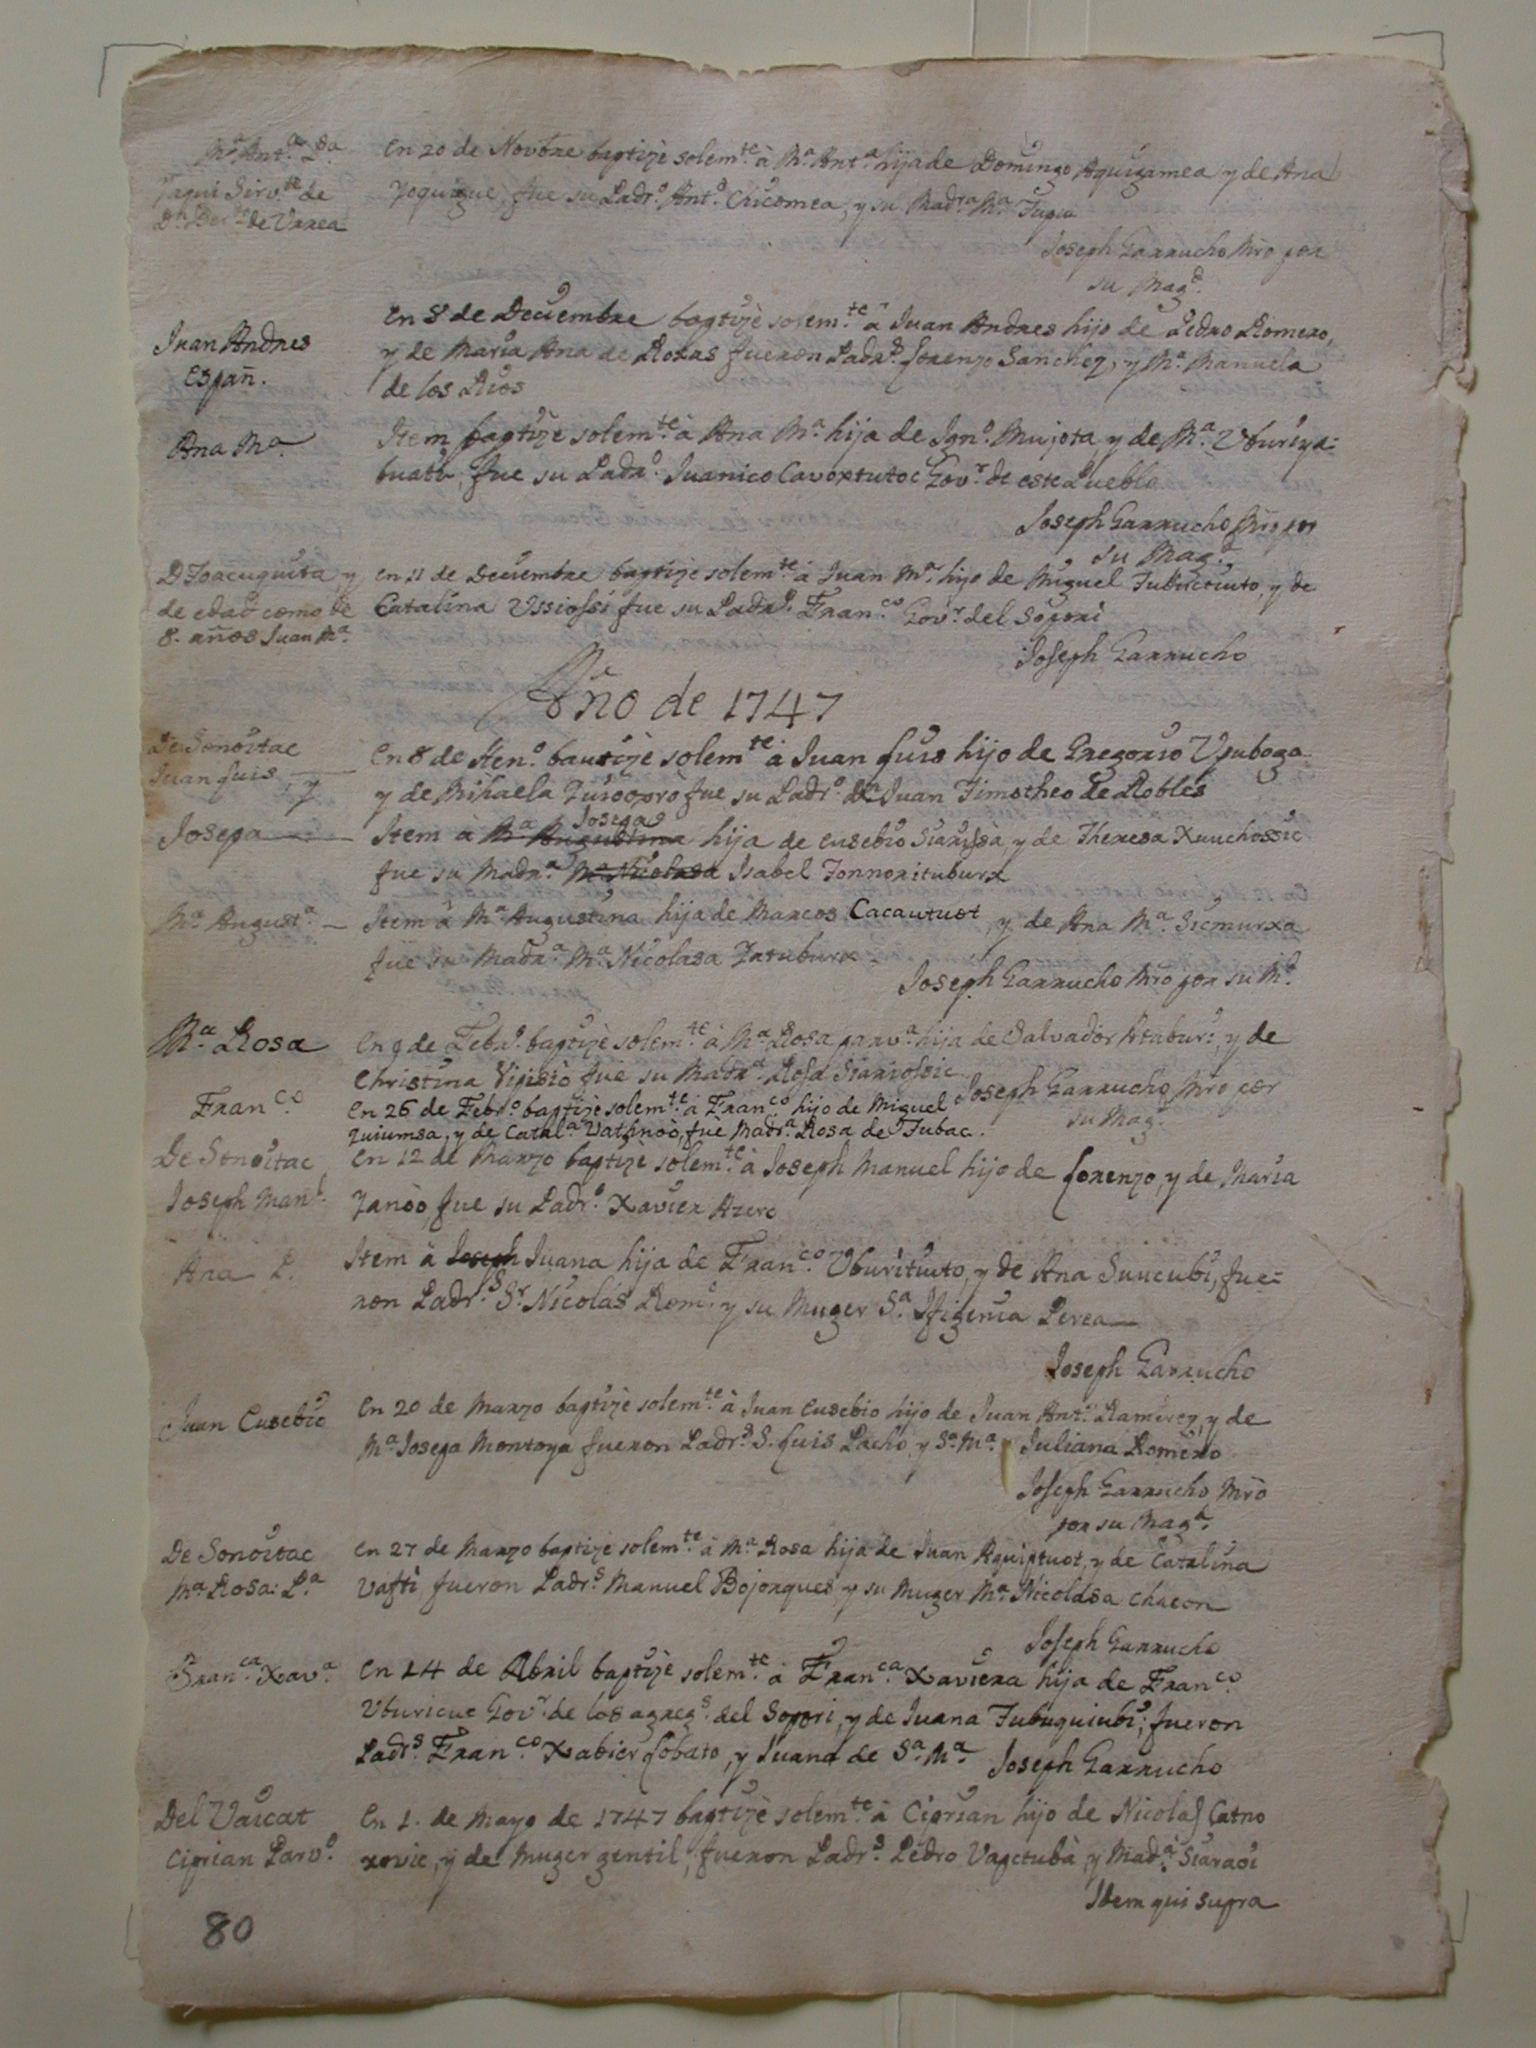 Mª Antª Pª
Yaqui Sirvte de
Dn Berdo de Urrea
En 20 de Novbre baptizè solemte à Mª Antª hija de Domingo Aquigamea y de Ana
Yoquigue, fue su Padrº Antº Chicomea, y su Madrª Mª Tupia
Joseph Garrucho Mro por
su Magd.
Juan Andres
Españ.
En 8 de Deciembre baptizè solemte à Juan Andres hijo de Pedro Romero,
y de Maria Ana de Roxas fueron Padrs Lorenzo Sanchez, y Mª Manuela
de los Rios
Ana Mª
Item baptizè solemte à Ana Mª hija de Ignº Mujota, y de Mª Vburiya-
buatu, fue su Padrº Juanico Cavortutoc Govr de este Pueblo
Joseph Garrucho Mro por
su Magd.
D Toacuquita, y
de edad como de
8. años Juan Mª
En 11 de Deciembre baptizè solemte à Juan Mª hijo de Miguel Tubirctiuto, y de
Catalina Ussiossi fue su Padrº Franco Govr del Sopori
Joseph Garrucho
Año de 1747
De Sonoitac
Juan Luis, y
En 8 de Henº bautizè solemte à Juan Luis hijo de Gregorio Vpuboga
y de Mihaela Quioopro fue su Padrº Dn Juan Timotheo de Robles
Josepa
Josepa
Item à Mª Augustina hija de Eusebio Siarissà, y de Theresa Xuuchossic
fue su Madrª Mª Nicolasa Isabel Tonnorituburx
Mª Augustª
Item à Mª Augustina hija de Marcos Cacautuot, y de Ana Mª Sicmurxa
fue su Madrª Mª Nicolasa Yatuburx
Joseph Garrucho Mro por su Md.
Mª Rosa
En 9 de Febrº baptizè solemte à Mª Rosa parvª hija de Salvador Ataburi, y de
Christina Vipisiò fue su Madrª Rosa Siarisoic
Joseph Garrucho Mro por
su Magd.
Franco
En 26 de Febrº baptizè solemte à Franco hijo de Miguel
Quiumsa, y de Catalª Vathnoò, fuè Madrª Rosa de Tubac.
De Sonoitac
Joseph Manl.
En 12 de Marzo baptizè solemte à Joseph Manuel hijo de Lorenzo, y de Maria
Yanoò, fue su Padrº Xavier Azero
Ana P.
Item à Joseph Juana hija de Franco Vburituito, y de Ana Suucubi, fue-
ron Padrs Sr Nicolás Romº y su Muger Sª Ifigenia Perea
Joseph Garrucho
Juan Eusebio
En 20 de Marzo baptizè solemte à Juan Eusebio hijo de Juan Antº Ramirez, y de
Mª Josepa Montoya fueron Padrs S. Luis Pacho, y Sª Mª Juliana Romero
Joseph Garrucho Mro
por su Magd.
De Sonoitac
Mª Rosa: Pª
En 27 de Marzo baptizè solemte à Mª Rosa hija de Juan Aquiptuot, y de Catalina
Vafti fueron Padrs Manuel Bojorques y su Muger Mª Nicolasa Chacon
Joseph Garrucho
Franca Xavª
En 14 de Abril baptizè solemte à Franca Xaviera hija de Franco
Vburicuc Govr de los agregs del Sopori, y de Juana Tubuquiubi, fueron
Padrs Franco Xabier Lobato, y Juana de Sª Mª Joseph Garrucho
Del Vaicat
Ciprian Parvº
En 1. de Mayo de 1747 baptizè solemte à Ciprian hijo de Nicolas Catno
rovic, y de Muger gentil, fueron Padrs Pedro Vapctubà, y Madª Siaraoi
Idem qui supra
80